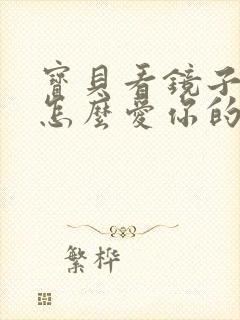 寶貝看鏡子
怎麼愛你的
繁桦